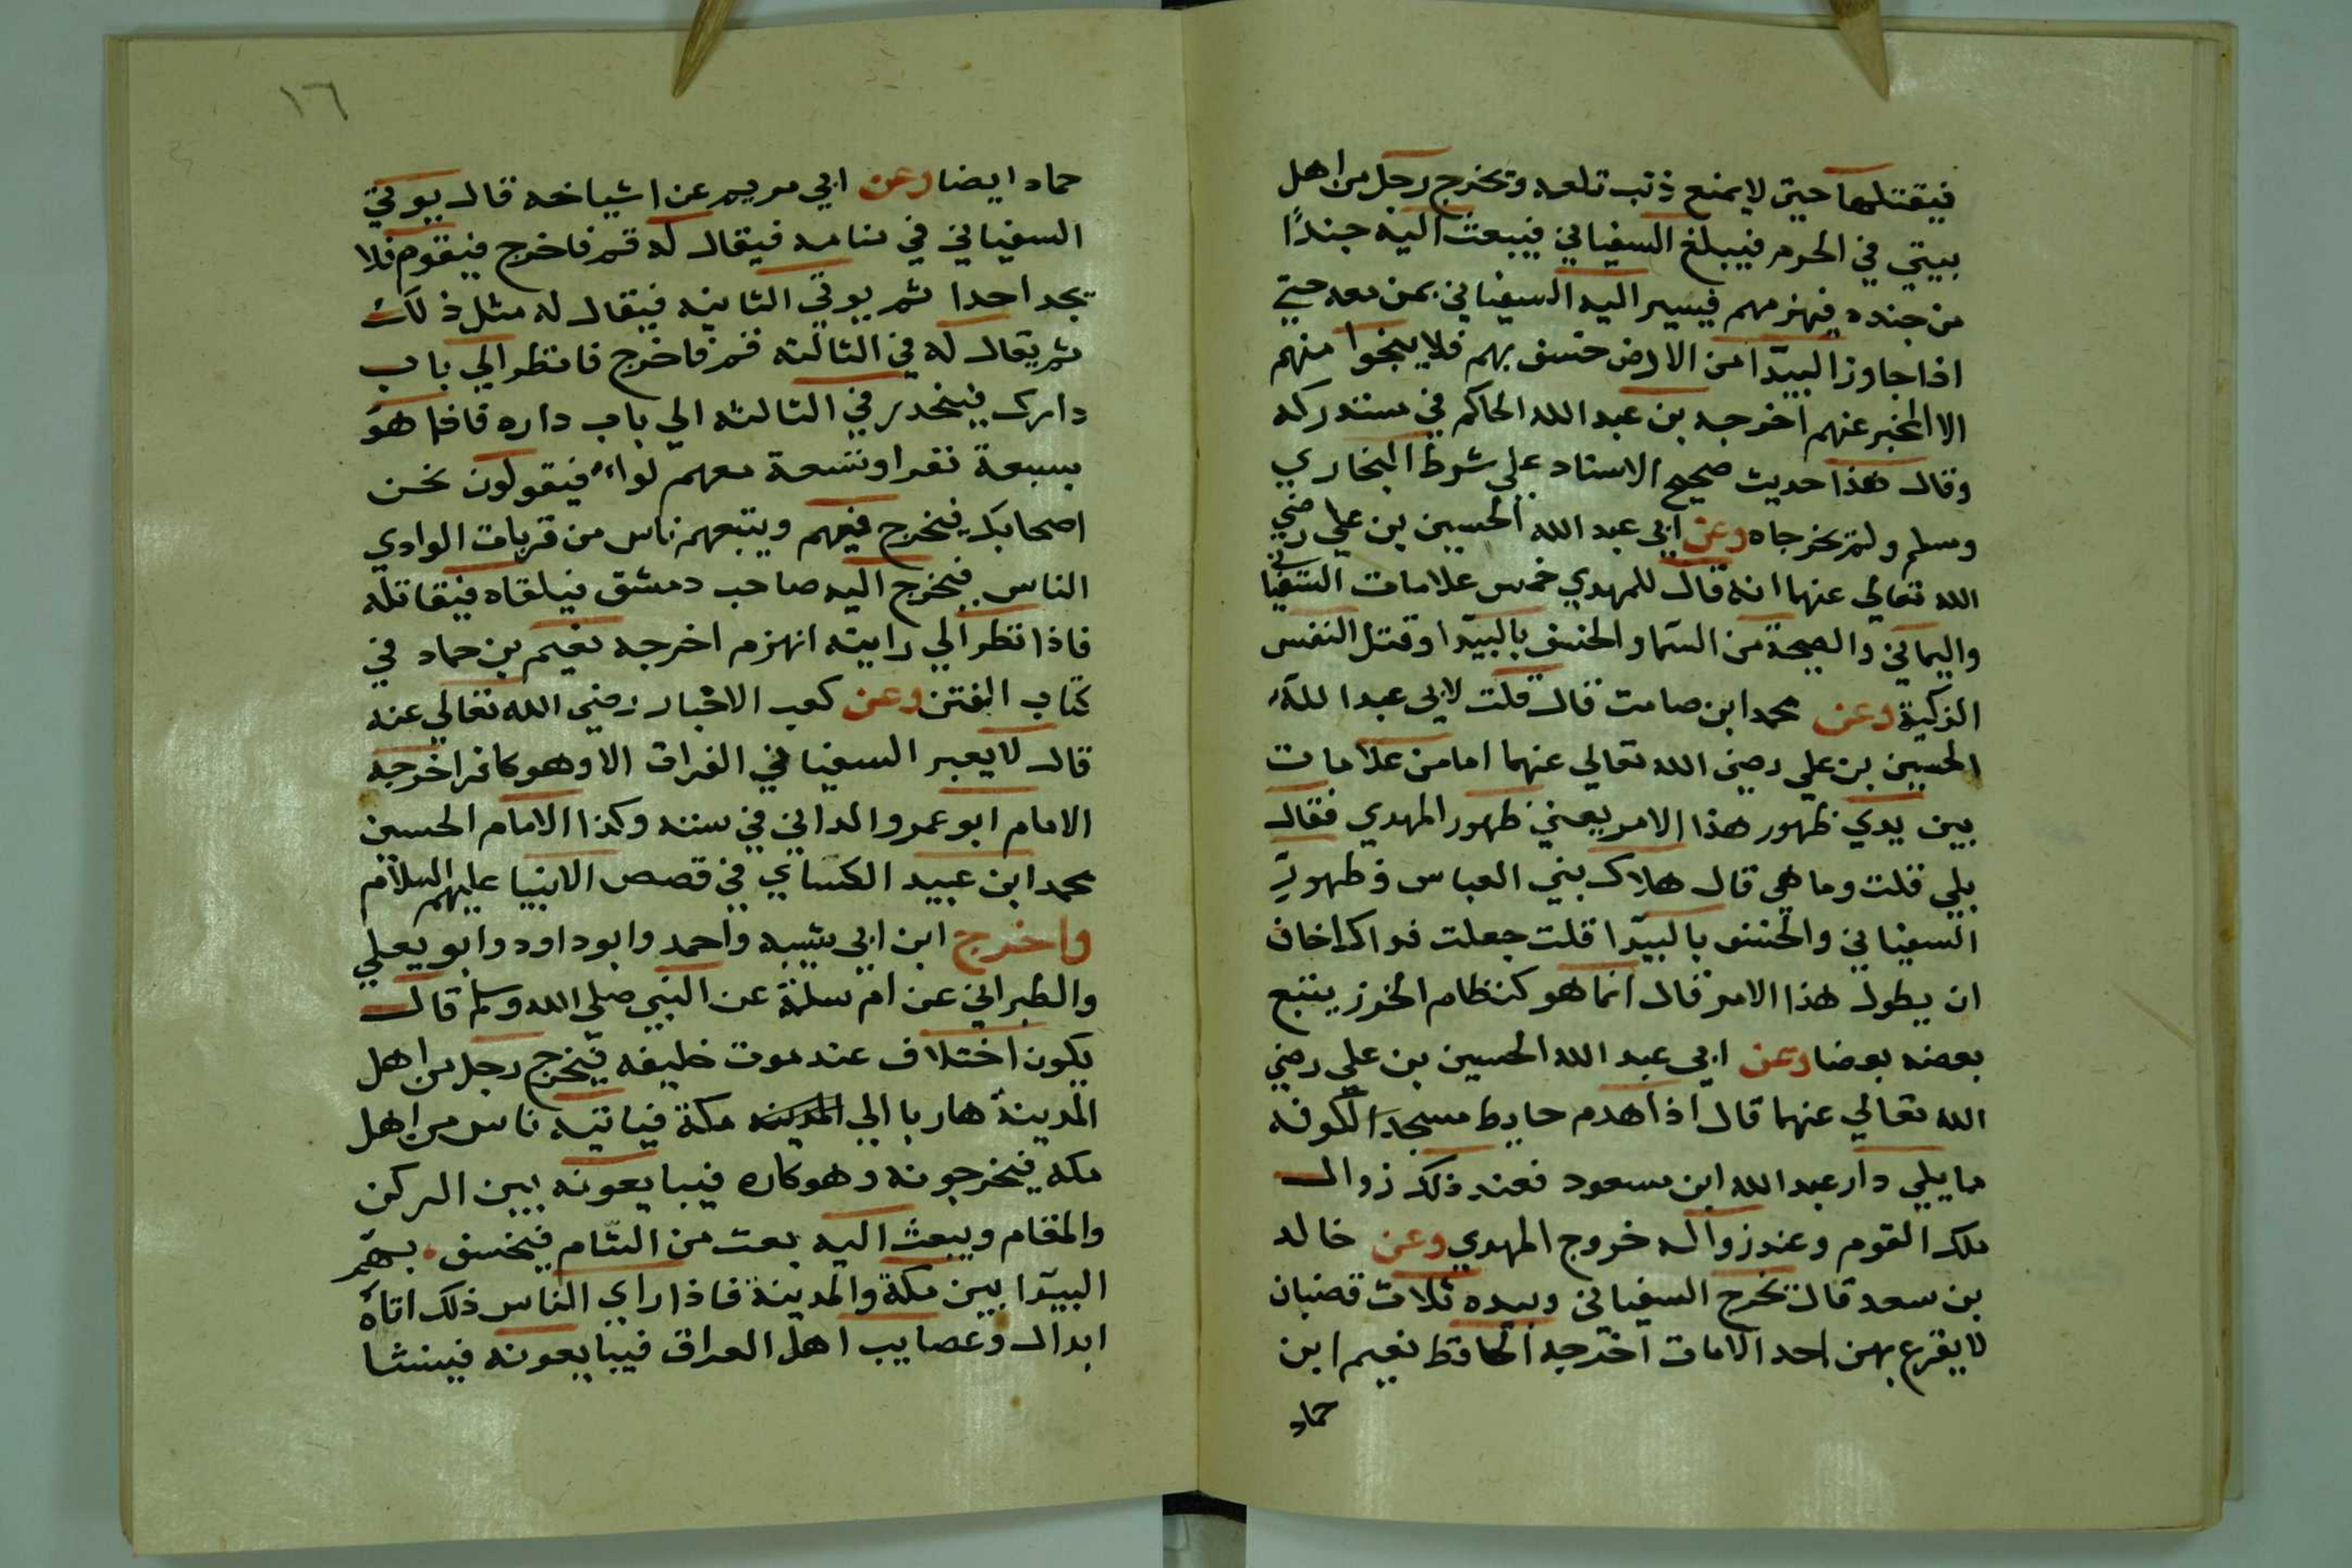 فيقتلها حتى لا يمنع ذنب تلعه ويخرج رجل من اهل
بيتي في الحرم فيبلغ السفياني فيبعث اليه جندًا
من جنده فيهزمهم فيسير اليه السفياني بمن معه حتي
اذا جاوز البيدا من الارض خسف بهم فلا ينجوا منهم
الا المخبر عنهم اخرجه بن عبد الله الحاكم في مستدركه
وقال هذا حديث صحيح الاسناد علي شرط البخاري
ومسلم ولم يخرجاه وعن ابي عبد الله الحسين بن علي رضي
الله تعالي عنهما انه قال للمهدي خمس علامات السفياني
واليماني والصيحة من السما والخسف بالبيدا وقتل النفس
الزكية وعن محمد ابن صامت قال قلت لابي عبد الله
الحسين بن علي رضي الله تعالي عنهما اما من علامات
بين يدي ظهور هذا الامر يعني ظهور المهدي فقال
بلي قلت وما هي قال هلاك بني العباس وظهور
السفياني والخسف بالبيدا قلت جعلت فداك اخاف
ان يطول هذا الامر قال انما هو كنظام الخرز يتبع
بعضه بعضا وعن ابي عبد الله الحسين بن علي رضي
الله تعالي عنهما قال اذا هدم حايط مسجد الكوفه
مما يلي دار عبد الله ابن مسعود فعند ذلك زوال
ملك القوم وعند زواله خروج المهدي وعن خالد
بن سعد قال يخرج السفياني وبيده ثلاث قضبان
لا يقرع بهن احد الامات اخرجه الحافظ نعيم ابن
حماد
١٦
حماد ايضا وعن ابي مريم عن اشياخه قال يوتي
السفياني في منامه فيقال له قم فاخرج فيقوم فلا
يجد احدا ثم يوتي الثانيه فيقال له مثل ذلك
ثم يقال له في الثالثه قم فاخرج فانظر الي باب
دارك فينحدر في الثالثه الي باب داره فاذا هو
بسبعة نفر او تسعة معهم لواء فيقولون نحن
اصحابك فيخرج فيهم ويتبعهم ناس من قريات الوادي
الناس فيخرج اليه صاحب دمشق فيلقاه فيقاتله
فاذا نظر الي رايته انهزم اخرجه نعيم بن حماد في
كتاب الفتن وعن كعب الاخبار رضي الله تعالي عنه
قال لا يعبر السفياني الفرات الا وهو كافر اخرجه
الامام ابو عمرو الداني في سننه وكذا الامام الحسين
محمد ابن عبيد الكساي في قصص الانبيا عليهم السلام
واخرج ابن ابي شيبه واحمد وابوداود وابو يعلي
والطبراني عن ام سلمة عن النبي صلى الله وسلم قال
يكون اختلاف عند موت خليفه فيخرج رجل من اهل
المدينة هاربا الي المدينه مكة فياتيه ناس من اهل
مكه فيخرجونه وهو كاره فيبايعونه بين الركن
والمقام ويبعث اليه بعث من الشام فيخسف بهم
البيدا بين مكة والمدينة فاذا راي الناس ذلك اتاه
ابدال وعصايب اهل العراق فيبايعونه فينشا